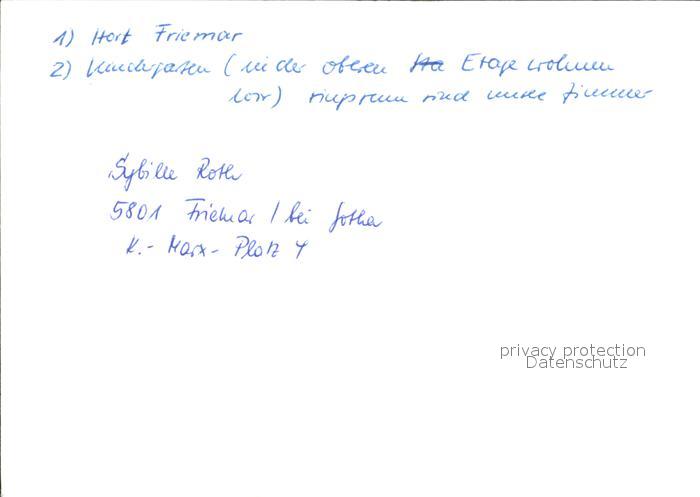 1) Hort Friemar
2) Kindergarten (in der oberen Etage wohnen
wir) ringsrum sind unsere Zimmer
Sybille Roth
5801 Friemar / bei Gotha
K.-Marx-Platz 4
privacy protection
Datenschutz